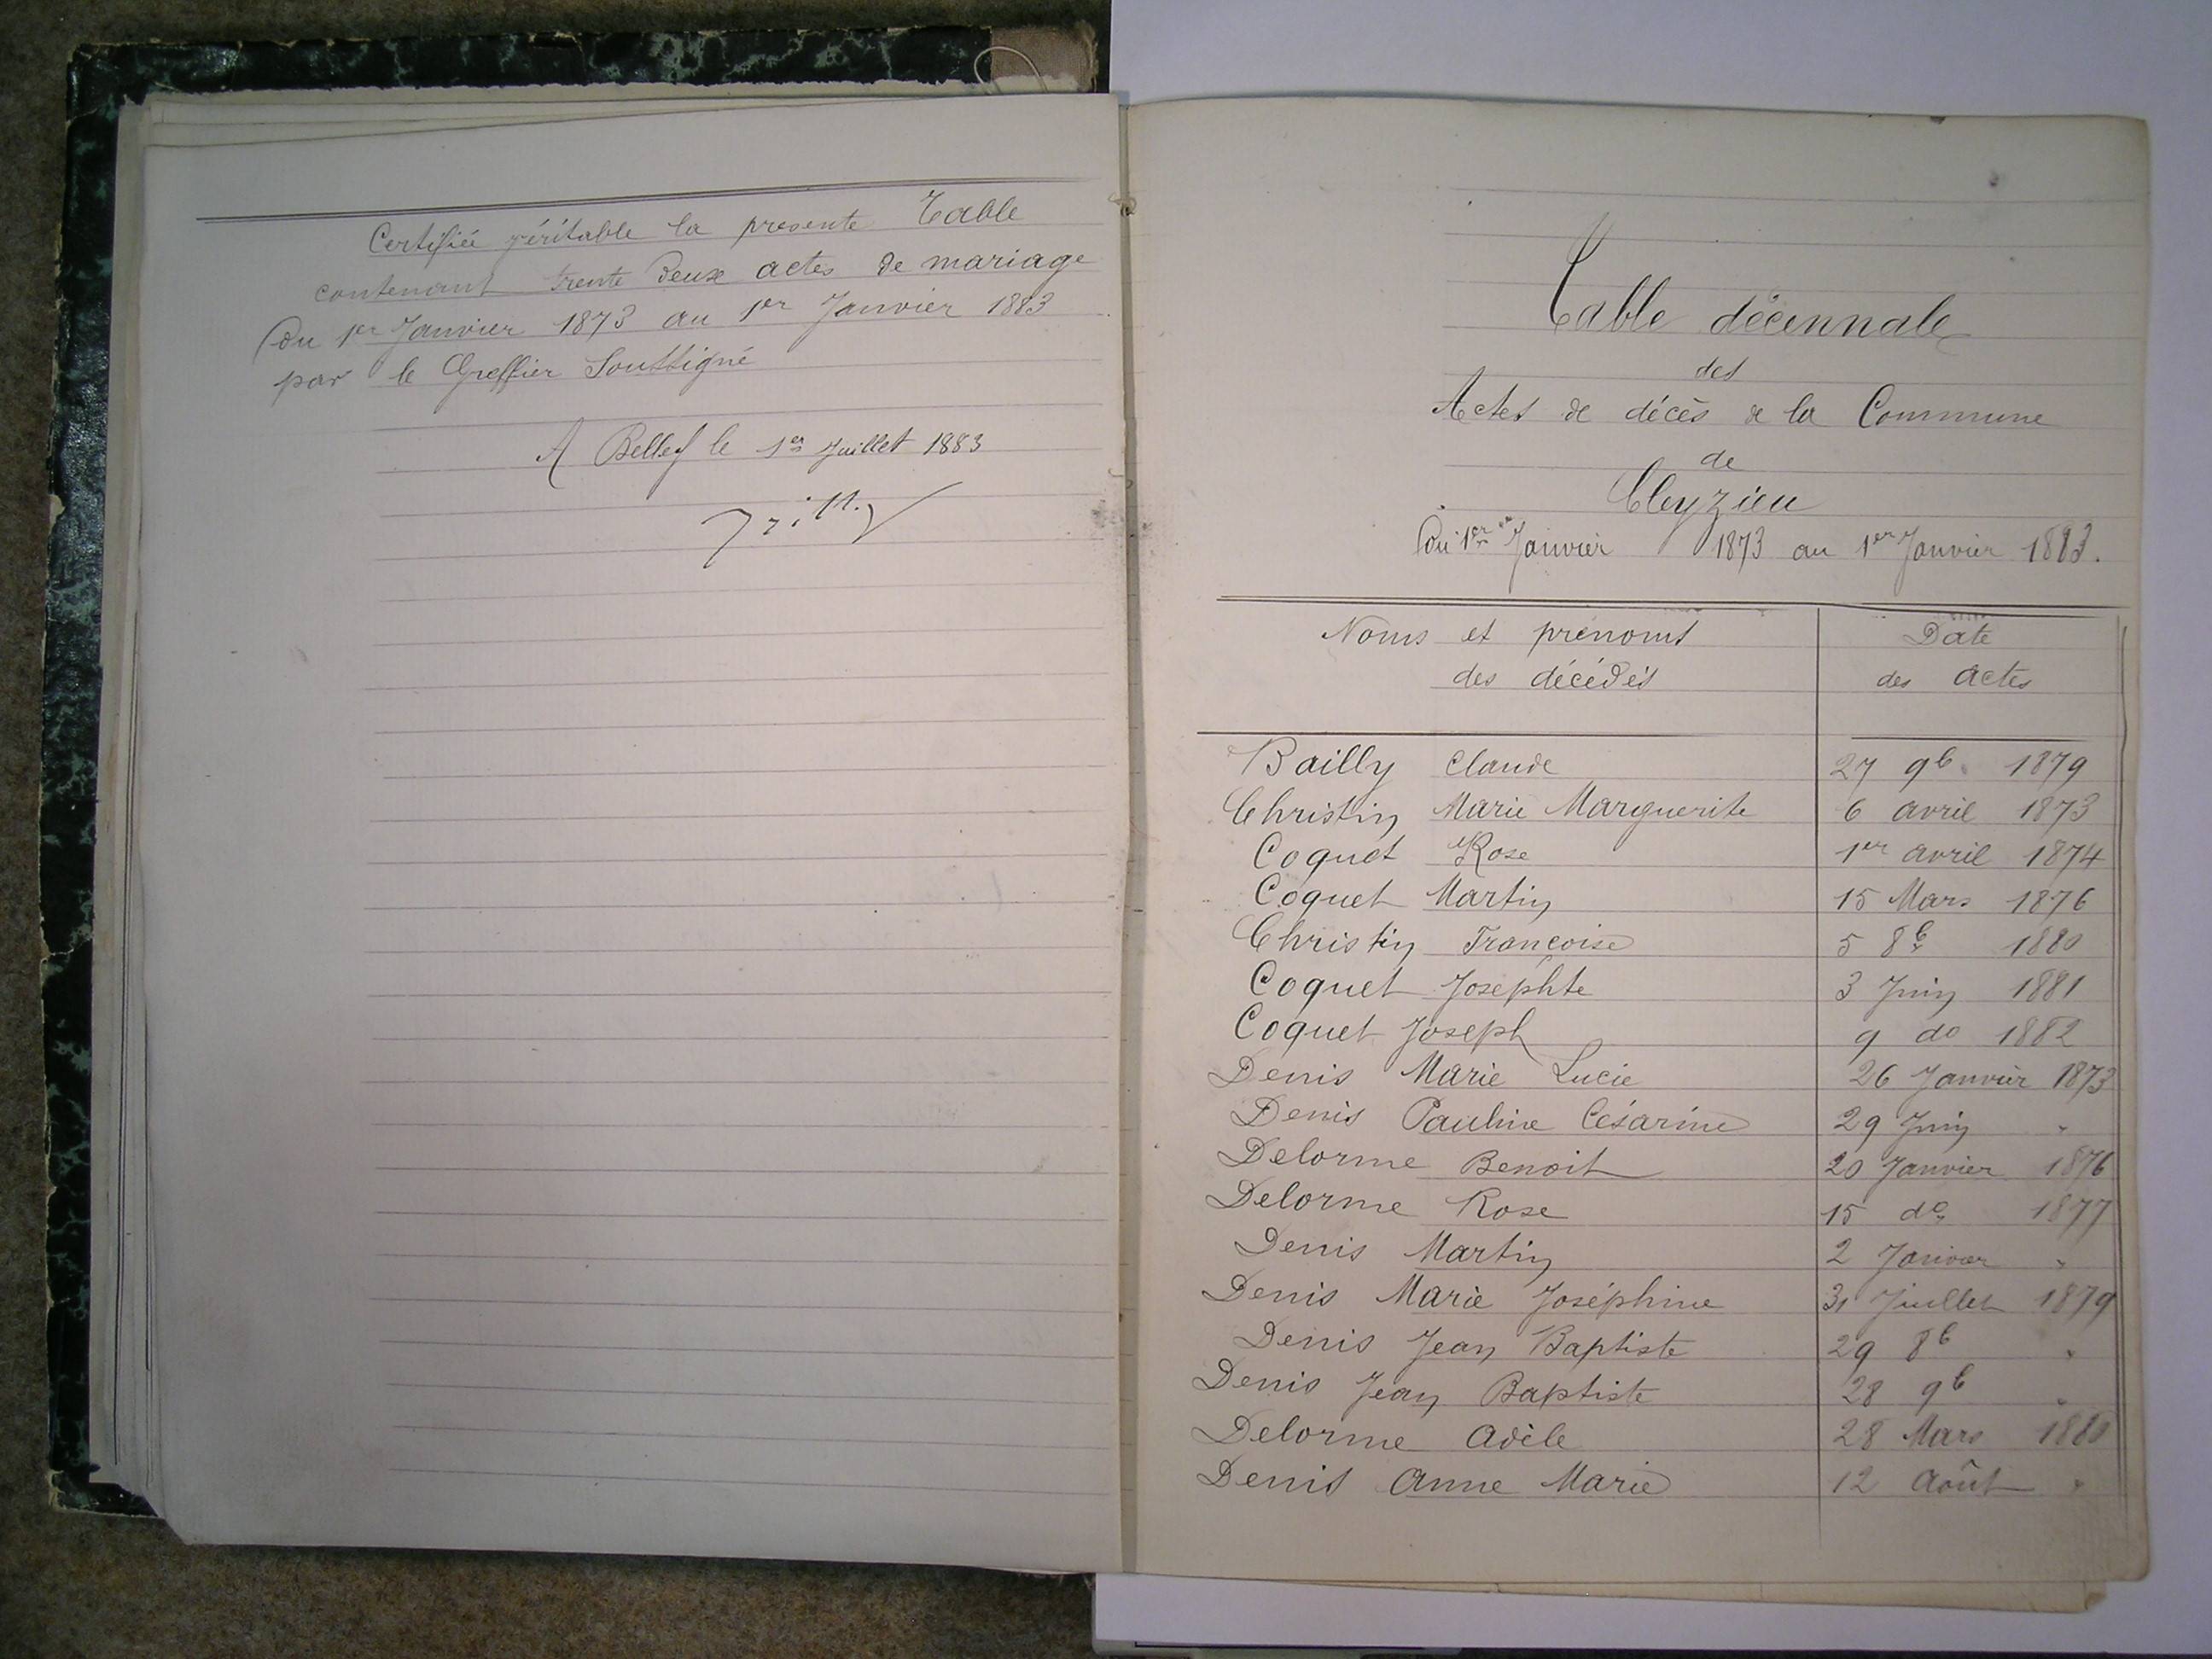 Certifiée véritable la presente Table
contenant trente deux actes de mariage
Du 1er Janvier 1873 au 1er Janvier 1883
par le Greffier Soussigné
A Belley le 1er Juillet 1883
Table décennale
des
Actes de décès de la Commune
de
Cleyzieu
Du 1er Janvier 1873 au 1er Janvier 1883.
Noms et prénoms
des décédés
Date
des actes
Bailly Claude 27 9b 1879
Christin Marie Marguerite 6 avril 1873
Coquet Rose 1er avril 1874
Coquet Martin 15 Mars 1876
Christin Françoise 5 8b 1880
Coquet Josephte 3 Juin 1881
Coquet Joseph 9 do 1882
Denis Marie Lucie 26 Janvier 1873
Denis Pauline Césarine 29 Juin "
Delorme Benoit 20 Janvier 1876
Delorme Rose 15 do 1877
Denis Martin 2 Janvier "
Denis Marie Joséphine 31 Juillet 1879
Denis Jean Baptiste 29 8b "
Denis Jean Baptiste 28 9b "
Delorme Adèle 28 Mars 1880
Denis Anne Marie 12 Août "